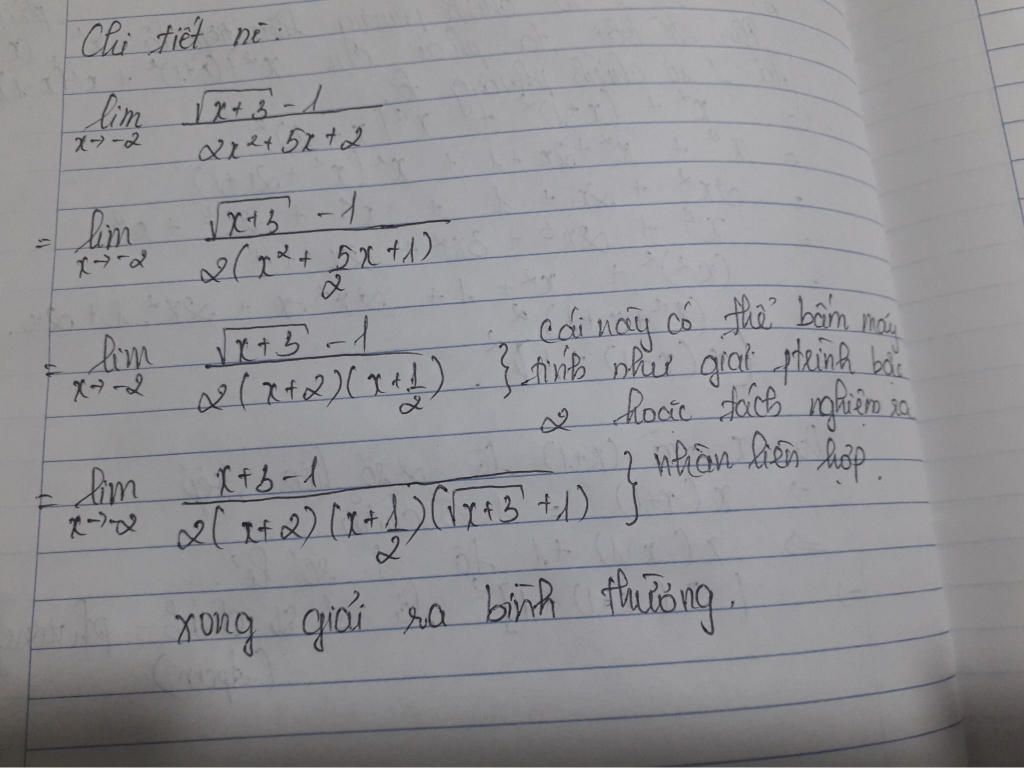 Chi tiết nè:
lim x→-2 (√(x+3) - 1)/(2x² + 5x + 2)
= lim x→-2 (√(x+3) - 1)/(2(x² + 5/2 x + 1))
= lim x→-2 (√(x+3) - 1)/(2(x+2)(x+1/2)) . } cái này có thể bấm máy
tính như giải ptrình bậc
2 hoặc tách nghiệm ra
= lim x→-2 (x+3-1)/(2(x+2)(x+1/2)(√(x+3) + 1)) } nhân liên hợp.
xong giải ra bình thường.